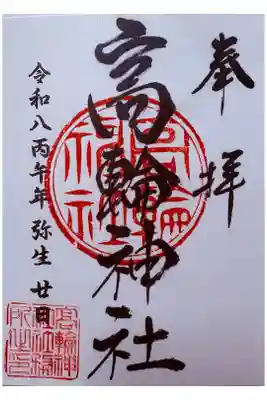 奉拝
高輪神社
令和八丙午年 弥生 廿日
高輪神社